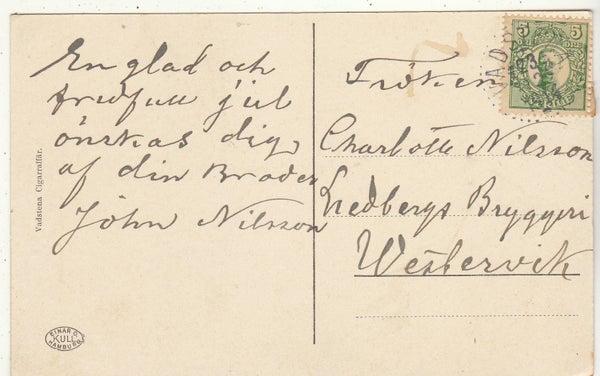 En glad och
fridfull jul
önskas dig,
af din Broder
John Nilsson
Fröken
Charlotte Nilsson
Liedbergs Bryggeri
Westervik
Vadstena Cigarraffär.
EINAR O. KULL HAMBURG
5 5
VADSTENA